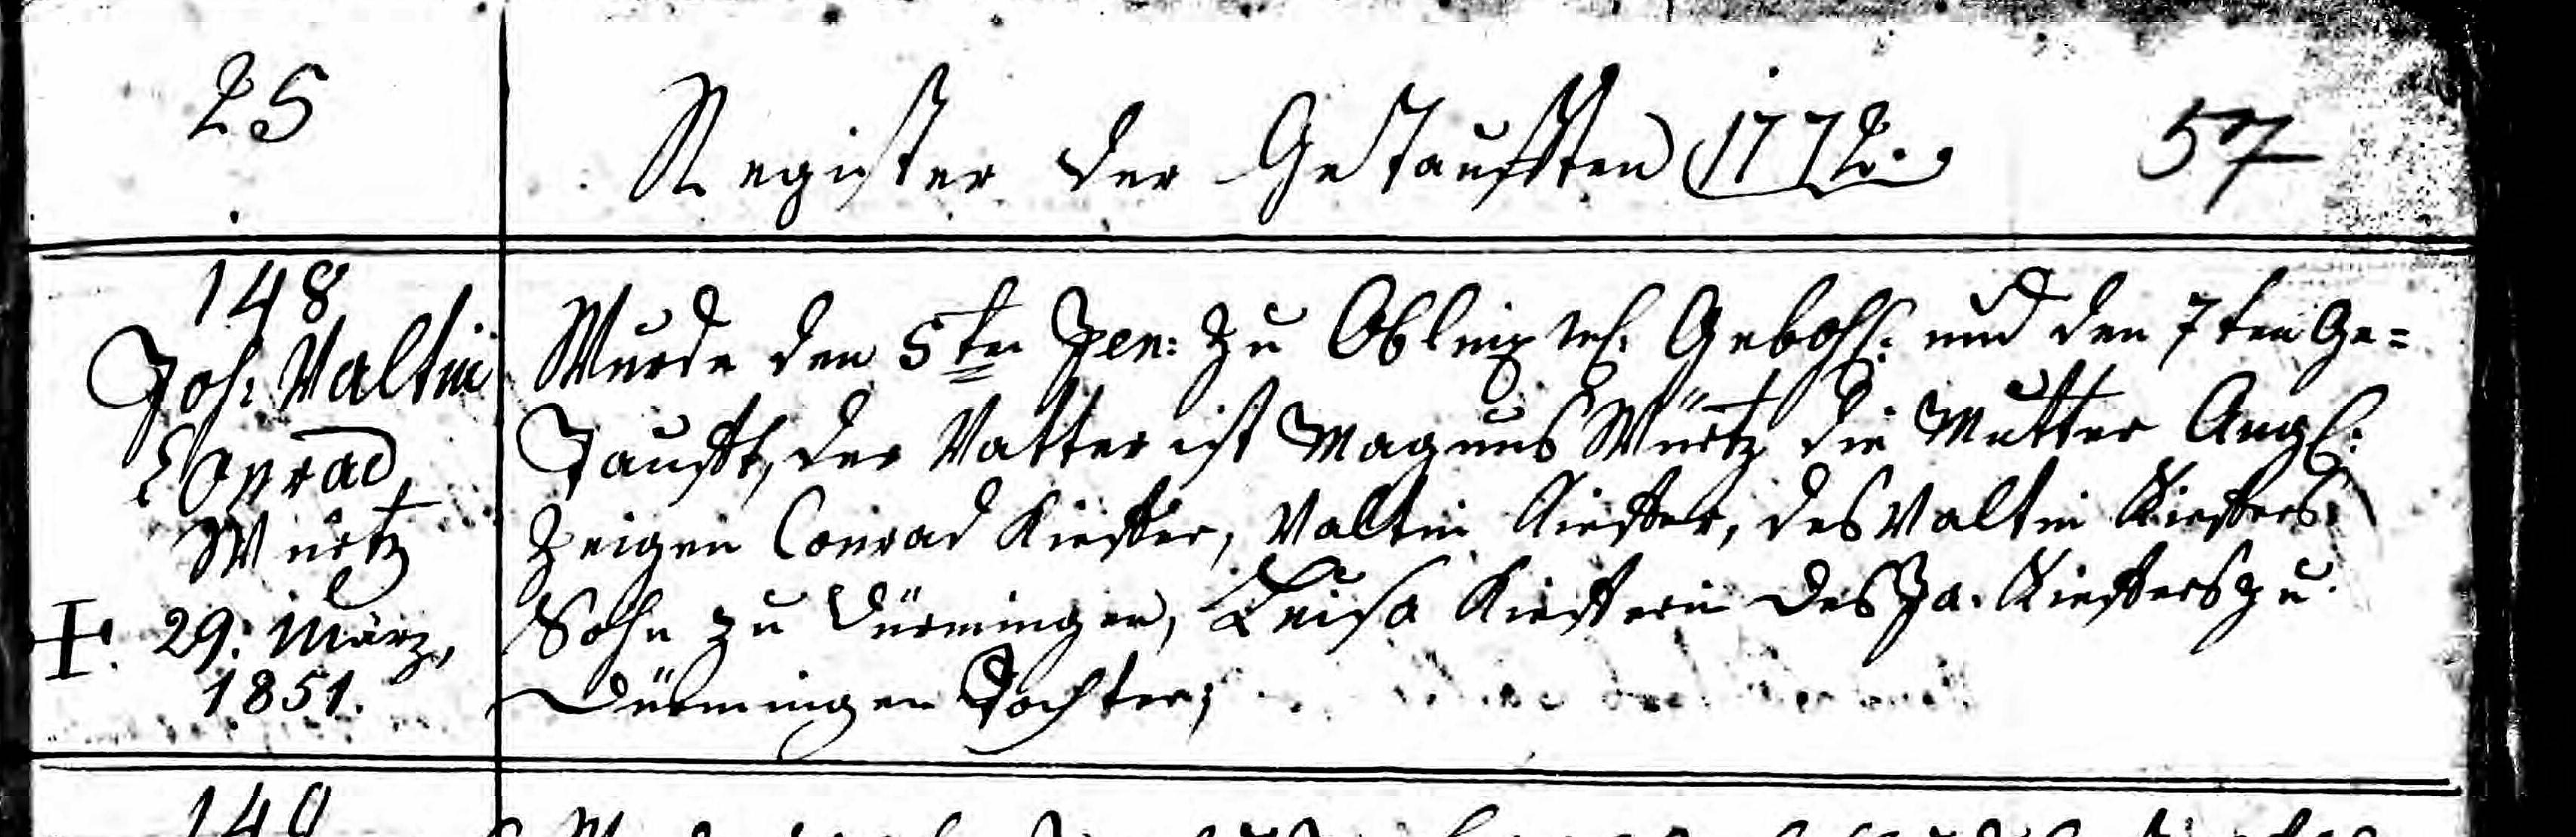 25
Register der Getaufften 1772.
57
148
Joh. Valtin
Conrad
Würtz
+. 29. März,
1851.
Wurde den 5ten Jen: zu Gebohr: und den 7ten Ge=
Taufft, der Vatter ist Magnus Würtz die Mutter
Zeigen Conrad Kieffer, Valtin Kieffer, des Valtin Kieffers
Sohn zu Dürmingen, Luisa Kiefferin des Ja. Kieffers zu
Dürmingen Tochter;
149